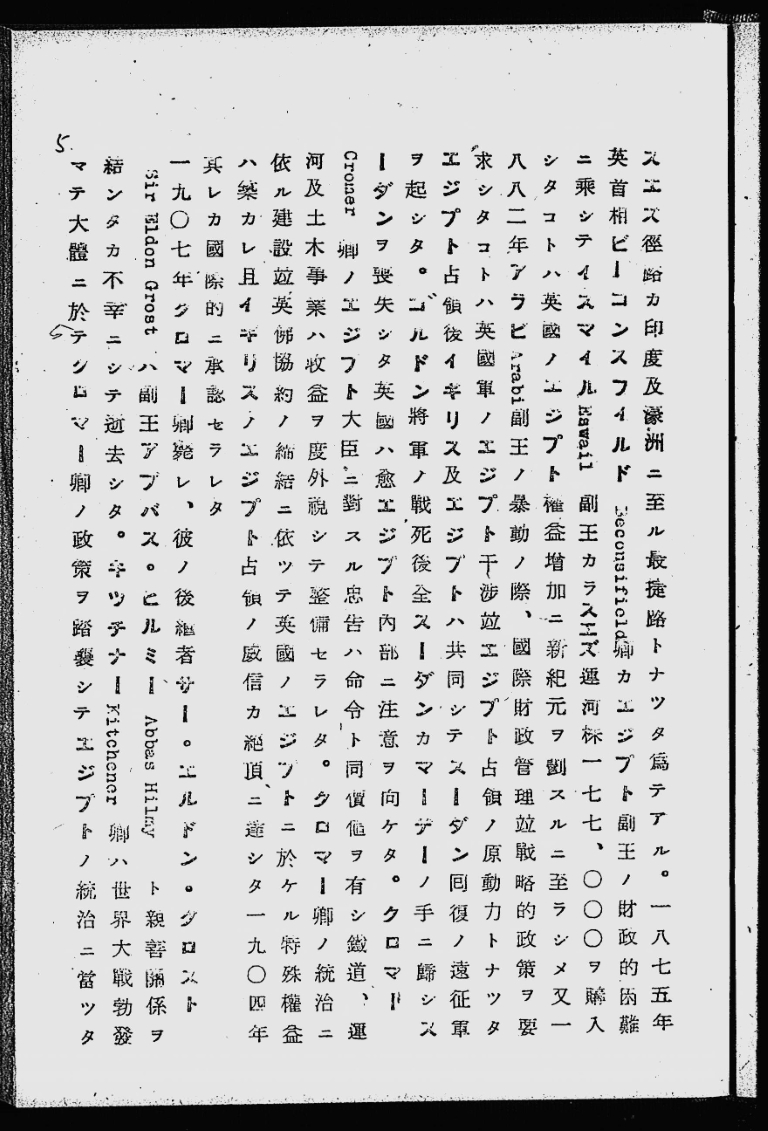 スエズ徑路カ印度及濠洲ニ至ル最捷路トナツタ爲テアル。一八七五年
英首相ビーコンスフイルド Beconsifield 卿カエジプト副王ノ財政的困難
ニ乘シテイスマイル Eswail 副王カラスエズ運河株一七七、〇〇〇ヲ購入
シタコトハ英國ノエジプト權益增加ニ新紀元ヲ劃スルニ至ラシメ又一
八八二年アラビ Arabi 副王ノ暴動ノ際、國際財政管理竝戰略的政策ヲ要
求シタコトハ英國軍ノエジプト干涉竝エジプト占領ノ原動力トナツタ
エジプト占領後イギリス及エジプトハ共同シテスーダン囘復ノ遠征軍
ヲ起シタ。ゴルドン將軍ノ戰死後全スーダンカマーサーノ手ニ歸シス
ーダンヲ喪失シタ英國ハ愈エジプト內部ニ注意ヲ向ケタ。クロマー
Cromer 卿ノエジプト大臣ニ對スル忠吿ハ命令ト同價値ヲ有シ鐵道、運
河及土木事業ハ收益ヲ度外視シテ整備セラレタ。クロマー卿ノ統治ニ
依ル建設竝英佛協約ノ締結ニ依ツテ英國ノエジプトニ於ケル特殊權益
ハ築カレ且イギリスノエジプト占領ノ威信カ絕頂ニ達シタ一九〇四年
其レカ國際的ニ承認セラレタ
一九〇七年クロマー卿斃レ、彼ノ後繼者サー。エルドン。グロスト
Sir Eldon Grost ハ副王アブバス。ヒルミー Abbas Hilmy ト親善關係ヲ
結ンタカ不幸ニシテ逝去シタ。キツチナー Kitchener 卿ハ世界大戰勃發
マテ大體ニ於テクロマー卿ノ政策ヲ踏襲シテエジプトノ統治ニ當ツタ
5.
5